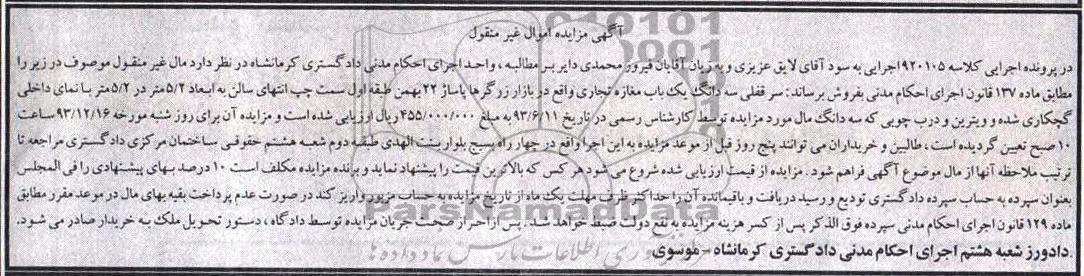 آگهی مزایده اموال غیر منقول
در پرونده اجرایی کلاسه ۹۲۰۱۰۵ اجرایی به سود آقای لایق عزیزی و به زیان آقایان فیروز محمدی دایر بر مطالبه ، واحد اجرای احکام مدنی دادگستری کرمانشاه در نظر دارد مال غیر منقول موصوف در زیر را
مطابق ماده ۱۳۷ قانون اجرای احکام مدنی بفروش برساند: سر قفلی سه دانگ یک باب مغازه تجاری واقع در بازار زرگرها پاساژ ۲۲ بهمن طبقه اول سمت چپ انتهای سالن به ابعاد ۵/۲ متر در ۵/۲ متر با نمای داخلی
گچکاری شده و ویترین و درب چوبی که سه دانگ مال مورد مزایده توسط کارشناس رسمی در تاریخ ۹۳/۶/۱۱ به مبلغ ۴۵۵/۰۰۰/۰۰۰ ریال ارزیابی شده است و مزایده آن برای روز شنبه مورخه ۹۳/۱۲/۱۶ ساعت
۱۰ صبح تعیین گردیده است ، طالبین و خریداران می توانند پنج روز قبل از موعد مزایده به این اجرا واقع در چهار راه بسیج بلوار بنت الهدی طبقه دوم شعبه هشتم حقوقی ساختمان مرکزی دادگستری مراجعه تا
ترتیب ملاحظه آنها از مال موضوع آگهی فراهم شود . مزایده از قیمت ارزیابی شده شروع می شود هر کس که بالاترین قیمت را پیشنهاد نماید و برنده مزایده مکلف است ۱۰ درصد بهای پیشنهادی را فی المجلس
بعنوان سپرده به حساب سپرده دادگستری تودیع و رسید دریافت و باقیمانده آن را حداکثر ظرف مهلت یک ماه از تاریخ مزایده به حساب مزبور واریز کند در صورت عدم پرداخت بقیه بهای مال در موعد مقرر مطابق
ماده ۱۲۹ قانون اجرای احکام مدنی سپرده فوق الذکر پس از کسر هزینه مزایده به نفع دولت ضبط خواهد شد . پس از احراز صحت جریان مزایده توسط دادگاه ، دستور تحویل ملک به خریدار صادر می شود.
دادورز شعبه هشتم اجرای احکام مدنی دادگستری کرمانشاه - موسوی
ParsNamadData